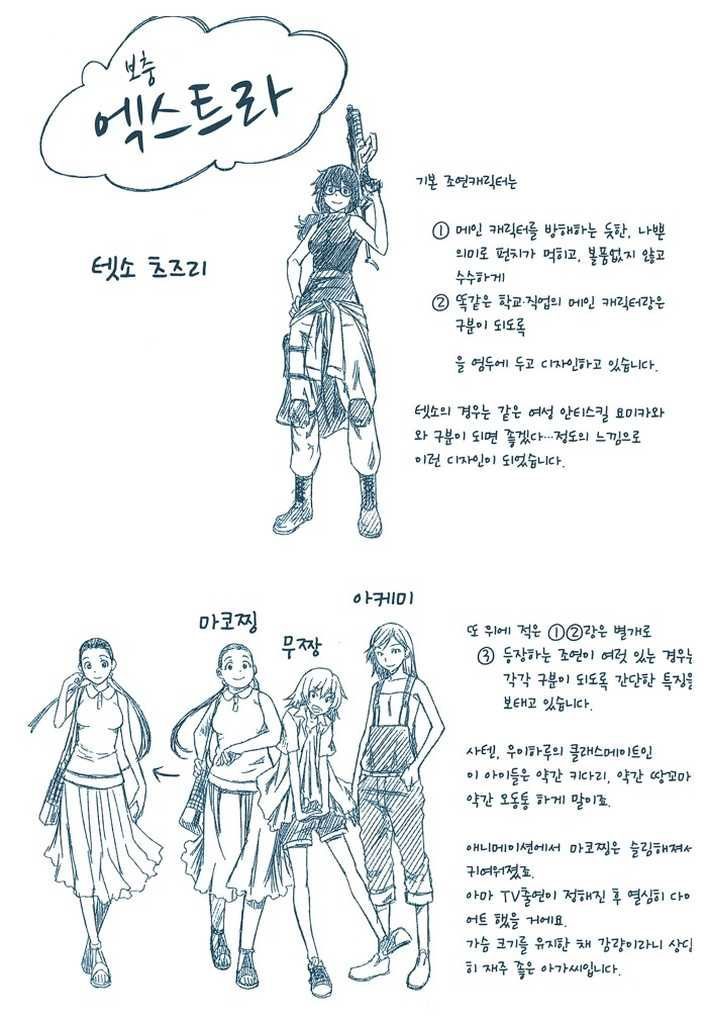 보충
엑스트라
텟소 츠즈리
기본 조연캐릭터는
① 메인 캐릭터를 방해하는 듯한, 나쁜
의미로 펀치가 먹히고, 볼품없지 않고
수수하게
② 똑같은 학교·직업의 메인 캐릭터랑은
구분이 되도록
을 염두에 두고 디자인하고 있습니다.
텟소의 경우는 같은 여성 안티스킬 요미카와
와 구분이 되면 좋겠다…정도의 느낌으로
이런 디자인이 되었습니다.
아케미
마코찡
무짱
또 위에 적은 ①②랑은 별개로
③ 등장하는 조연이 여럿 있는 경우는
각각 구분이 되도록 간단한 특징을
보태고 있습니다.
사텐, 우이하루의 클래스메이트인
이 아이들은 약간 키다리, 약간 땅꼬마
약간 오동통 하게 말이죠.
애니메이션에서 마코찡은 슬림해져서
귀여워졌죠.
아마 TV출연이 정해진 후 열심히 다이
어트 했을 거에요.
가슴 크기를 유지한 채 감량이라니 상당
히 재주 좋은 아가씨입니다.